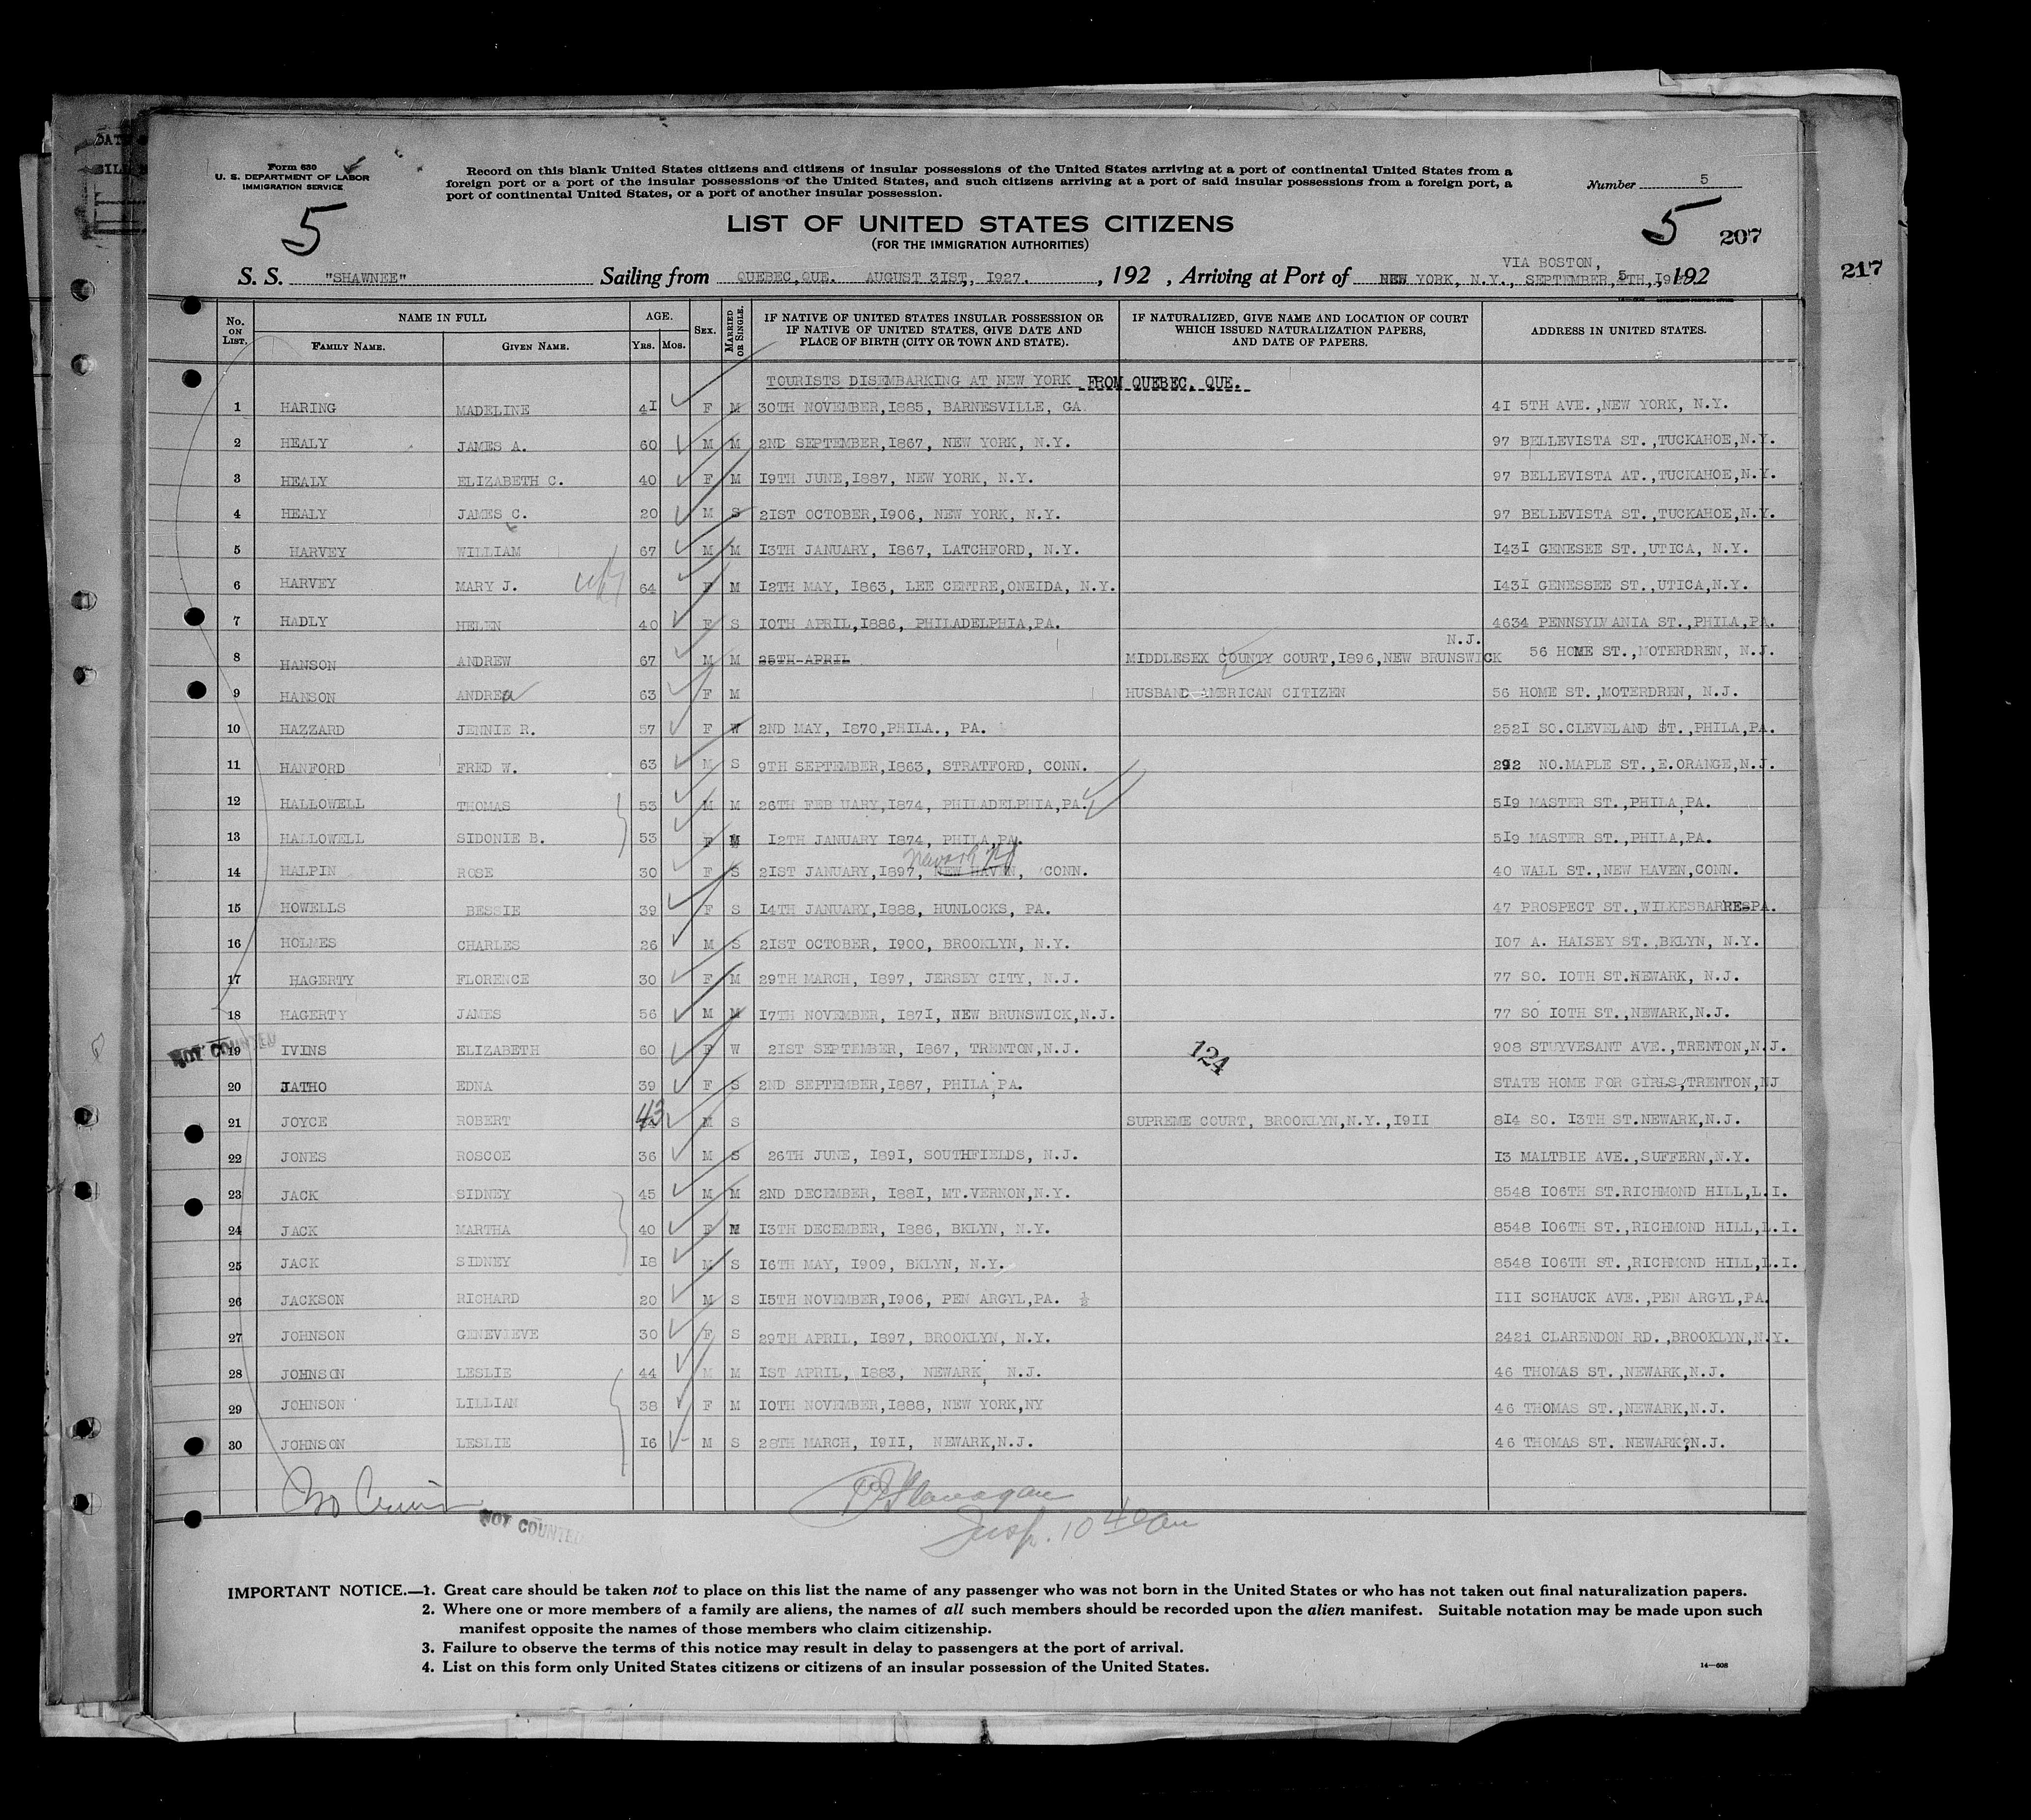 DATE
BILL
Form 630
U. S. DEPARTMENT OF LABOR
IMMIGRATION SERVICE
Record on this blank United States citizens and citizens of insular possessions of the United States arriving at a port of continental United States from a
foreign port or a port of the insular possessions of the United States, and such citizens arriving at a port of said insular possessions from a foreign port, a
port of continental United States, or a port of another insular possession.
Number 5
5
LIST OF UNITED STATES CITIZENS
(FOR THE IMMIGRATION AUTHORITIES)
5 207
217
VIA BOSTON,
S. S. "SHAWNEE" Sailing from QUEBEC,QUE. AUGUST 31ST, 1927. , 192 , Arriving at Port of NEW YORK, N.Y., SEPTEMBER, 5TH, 192
No. ON LIST. NAME IN FULL FAMILY NAME. GIVEN NAME. AGE. YRS. MOS. SEX. MARRIED OR SINGLE. IF NATIVE OF UNITED STATES INSULAR POSSESSION OR IF NATIVE OF UNITED STATES, GIVE DATE AND PLACE OF BIRTH (CITY OR TOWN AND STATE). IF NATURALIZED, GIVE NAME AND LOCATION OF COURT WHICH ISSUED NATURALIZATION PAPERS, AND DATE OF PAPERS. ADDRESS IN UNITED STATES.
TOURISTS DISEMBARKING AT NEW YORK FROM QUEBEC, QUE.
1 HARING MADELINE 41 F M 30TH NOVEMBER,1885, BARNESVILLE, GA. 41 5TH AVE.,NEW YORK, N.Y.
2 HEALY JAMES A. 60 M M 2ND SEPTEMBER,1867, NEW YORK, N.Y. 97 BELLEVISTA ST.,TUCKAHOE,N.Y.
3 HEALY ELIZABETH C. 40 F M 19TH JUNE,1887, NEW YORK, N.Y. 97 BELLEVISTA AT.,TUCKAHOE,N.Y.
4 HEALY JAMES C. 20 M S 21ST OCTOBER,1906, NEW YORK, N.Y. 97 BELLEVISTA ST.,TUCKAHOE,N.Y.
5 HARVEY WILLIAM 67 M M 13TH JANUARY, 1867, LATCHFORD, N.Y. 1431 GENESEE ST.,UTICA, N.Y.
6 HARVEY MARY J. 64 F M 12TH MAY, 1863, LEE CENTRE,ONEIDA, N.Y. 1431 GENESSEE ST.,UTICA,N.Y.
7 HADLY HELEN 40 F S 10TH APRIL,1886, PHILADELPHIA,PA. 4634 PENNSYLVANIA ST.,PHILA,PA.
N.J.
8 HANSON ANDREW 67 M M 25TH APRIL MIDDLESEX COUNTY COURT,1896,NEW BRUNSWICK 56 HOME ST.,MOTERDREN, N.J.
9 HANSON ANDREa 63 F M HUSBAND AMERICAN CITIZEN 56 HOME ST.,MOTERDREN, N.J.
10 HAZZARD JENNIE R. 57 F W 2ND MAY, 1870,PHILA., PA. 2521 SO.CLEVELAND ST.,PHILA,PA.
11 HANFORD FRED W. 63 M S 9TH SEPTEMBER,1863, STRATFORD, CONN. 292 NO.MAPLE ST.,E.ORANGE,N.J.
12 HALLOWELL THOMAS 53 M M 26TH FEB UARY,1874, PHILADELPHIA,PA. 519 MASTER ST.,PHILA,PA.
13 HALLOWELL SIDONIE B. 53 F M 12TH JANUARY 1874, PHILA,PA. 519 MASTER ST.,PHILA,PA.
Newark NJ
14 HALPIN ROSE 30 F S 21ST JANUARY,1897, NEW HAVEN, CONN. 40 WALL ST.,NEW HAVEN,CONN.
15 HOWELLS BESSIE 39 F S 14TH JANUARY,1888, HUNLOCKS, PA. 47 PROSPECT ST.,WILKESBARRESPA.
16 HOLMES CHARLES 26 M S 21ST OCTOBER, 1900, BROOKLYN, N.Y. 107 A. HALSEY ST.,BKLYN, N.Y.
17 HAGERTY FLORENCE 30 F M 29TH MARCH, 1897, JERSEY CITY, N.J. 77 SO. 10TH ST.NEWARK, N.J.
18 HAGERTY JAMES 56 M M 17TH NOVEMBER, 1871, NEW BRUNSWICK,N.J. 77 SO 10TH ST.,NEWARK,N.J.
NOT COUNTED
19 IVINS ELIZABETH 60 F W 21ST SEPTEMBER, 1867, TRENTON,N.J. 124 908 STUYVESANT AVE.,TRENTON,N.J.
20 JATHO EDNA 39 F S 2ND SEPTEMBER,1887, PHILA,PA. STATE HOME FOR GIRLS,TRENTON,NJ
21 JOYCE ROBERT 43 M S SUPREME COURT, BROOKLYN,N.Y.,1911 814 SO. 13TH ST.NEWARK,N.J.
22 JONES ROSCOE 36 M S 26TH JUNE, 1891, SOUTHFIELDS, N.J. 13 MALTBIE AVE.,SUFFERN,N.Y.
23 JACK SIDNEY 45 M M 2ND DECEMBER, 1881, MT.VERNON,N.Y. 8548 106TH ST.RICHMOND HILL,L.I.
24 JACK MARTHA 40 F M 13TH DECEMBER, 1886, BKLYN, N.Y. 8548 106TH ST.,RICHMOND HILL,L.I.
25 JACK SIDNEY 18 M S 16TH MAY, 1909, BKLYN, N.Y. 8548 106TH ST.,RICHMOND HILL,L.I.
26 JACKSON RICHARD 20 M S 15TH NOVEMBER,1906, PEN ARGYL,PA. ½ 111 SCHAUCK AVE.,PEN ARGYL,PA.
27 JOHNSON GENEVIEVE 30 F S 29TH APRIL, 1897, BROOKLYN, N.Y. 2421 CLARENDON RD.,BROOKLYN,N.Y.
28 JOHNSON LESLIE 44 M M 1ST APRIL, 1883, NEWARK, N.J. 46 THOMAS ST.,NEWARK,N.J.
29 JOHNSON LILLIAN 38 F M 10TH NOVEMBER,1888, NEW YORK,NY 46 THOMAS ST.,NEWARK,N.J.
30 JOHNSON LESLIE 16 M S 28TH MARCH, 1911, NEWARK,N.J. 46 THOMAS ST. NEWARK?N.J.
Flanagan
NOT COUNTED
Insp. 10 40 am
IMPORTANT NOTICE.—1. Great care should be taken not to place on this list the name of any passenger who was not born in the United States or who has not taken out final naturalization papers.
2. Where one or more members of a family are aliens, the names of all such members should be recorded upon the alien manifest. Suitable notation may be made upon such
manifest opposite the names of those members who claim citizenship.
3. Failure to observe the terms of this notice may result in delay to passengers at the port of arrival.
4. List on this form only United States citizens or citizens of an insular possession of the United States.
14—608